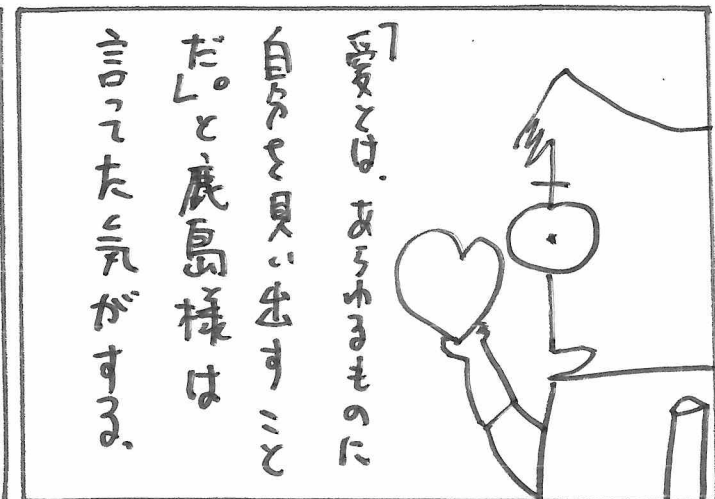 「愛とは、あらゆるものに
自分を見い出すこと
だ。」と鹿島様は
言ってた気がする。